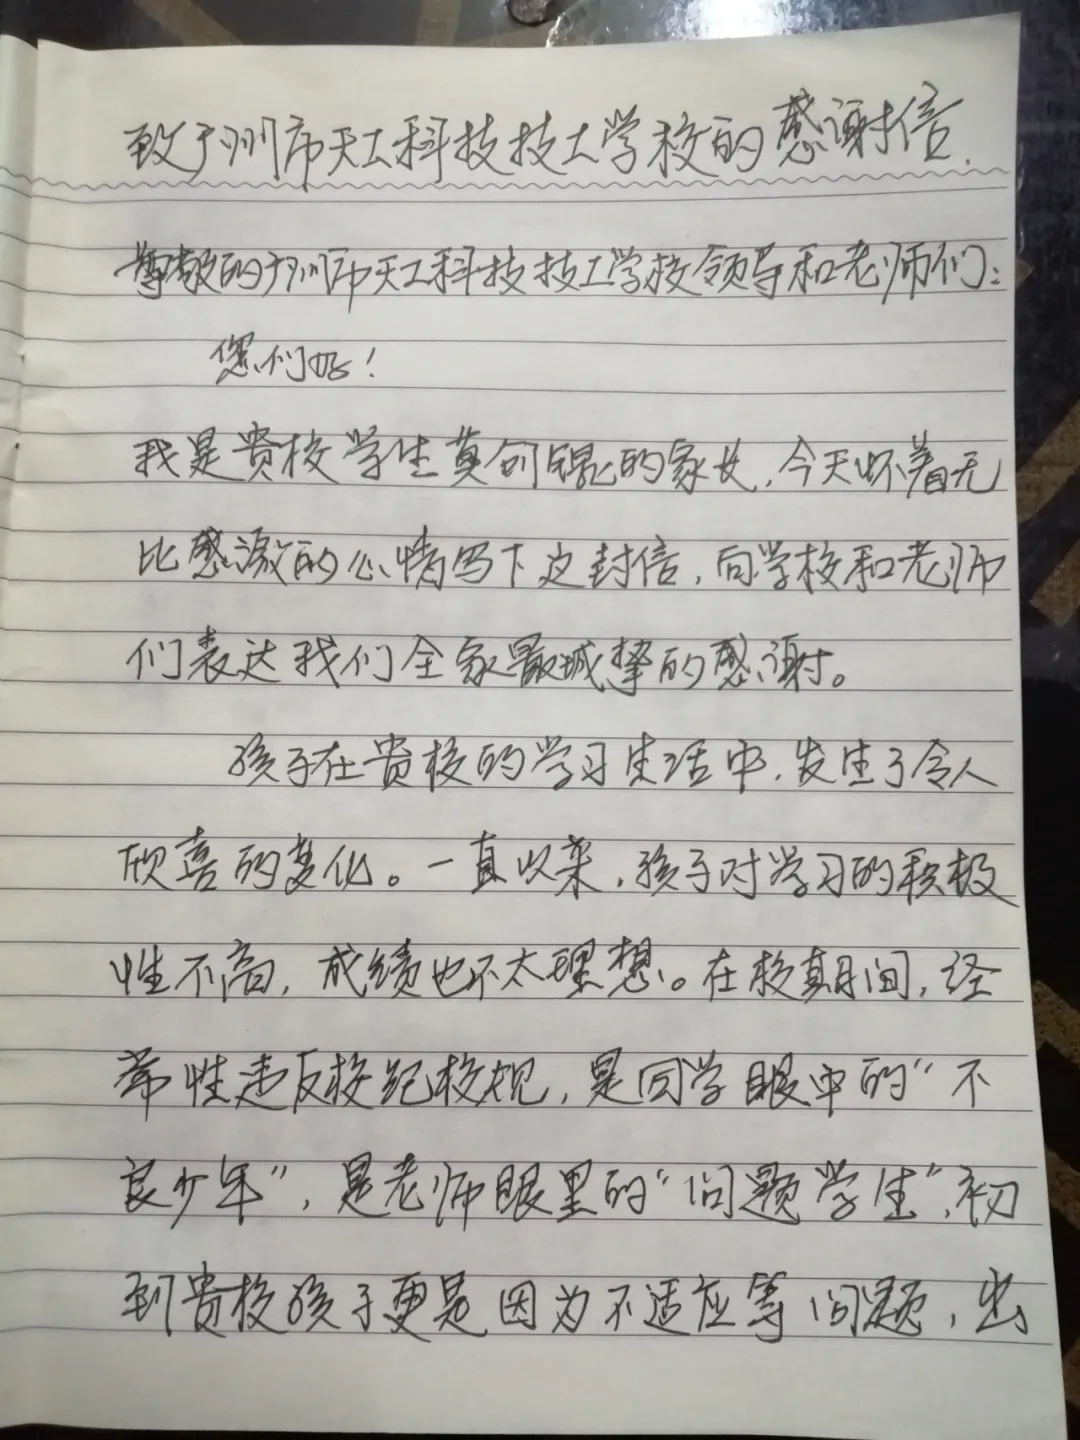 致广州市天工科技技工学校的感谢信
尊敬的广州市天工科技技工学校领导和老师们:
您们好!
我是贵校学生莫剑锟的家长,今天怀着无
比感激的心情写下这封信,向学校和老师
们表达我们全家最诚挚的感谢。
孩子在贵校的学习生活中,发生了令人
欣喜的变化。一直以来,孩子对学习的积极
性不高,成绩也不太理想。在校期间,经
常性违反校纪校规,是同学眼中的“不
良少年”,是老师眼里的“问题学生”,初
到贵校孩子更是因为不适应等问题,出